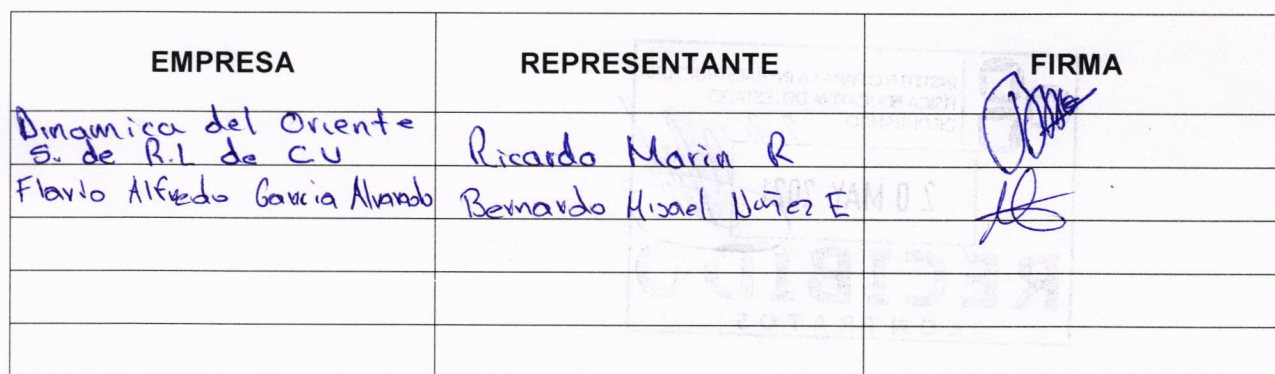 EMPRESA REPRESENTANTE FIRMA
Dinamica del Oriente
S. de R.L de CV Ricardo Marin R
Flavio Alfredo Garcia Alvarado Bernardo Misael Nuñez E
20 MAY 2021
RECIBIDO
CONTRATOS